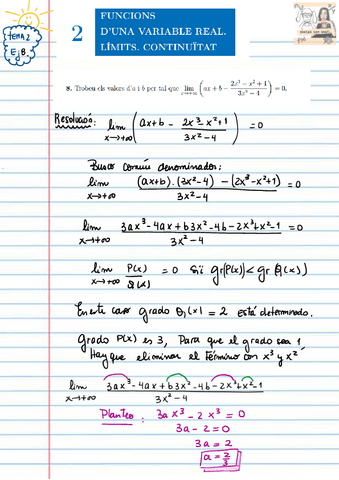 TEMA 2
Ej 8
2
FUNCIONS
D'UNA VARIABLE REAL.
LÍMITS. CONTINUÏTAT
8. Trobeu els valors d'a i b per tal que lim x→+∞ (ax + b − (2x³ − x² + 1)/(3x² − 4)) = 0.
Resolució: lim x→+∞ (ax+b − (2x³-x²+1)/(3x²-4)) = 0
Busco común denominador:
lim x→+∞ ((ax+b).(3x²-4) − (2x³-x²+1))/(3x²-4) = 0
lim x→+∞ (3ax³-4ax+b3x²-4b-2x³+x²-1)/(3x²-4) = 0
lim x→+∞ P(x)/Q(x) = 0 Sii gr(P(x)) < gr Q(x)
En este caso grado Q(x) = 2 está determinado.
grado P(x) es 3, Para que el grado sea 1
Hay que eliminar el término con x³ y x²
lim x→+∞ (3ax³-4ax+b3x²-4b-2x³+x²-1)/(3x²-4)
Planteo: 3ax³ − 2x³ = 0
3a − 2 = 0
3a = 2
a = 2/3